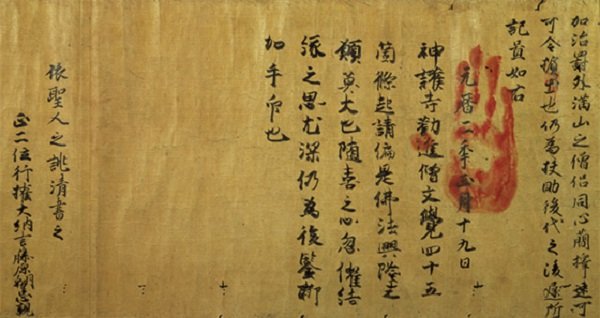 加治罰外満山之僧侶同心簡擇速可
可令擯出也仍為扶助後代之後所
記置如右
元暦二年正月十九日
神護寺勧進僧文覺四十五
箇條起請偏是佛法興隆之
願莫大也随喜之心忽催結
縁之思尤深仍為後鑒聊
加手印也
依聖人之誂清書之
正二位行權大納言藤原朝臣忠親